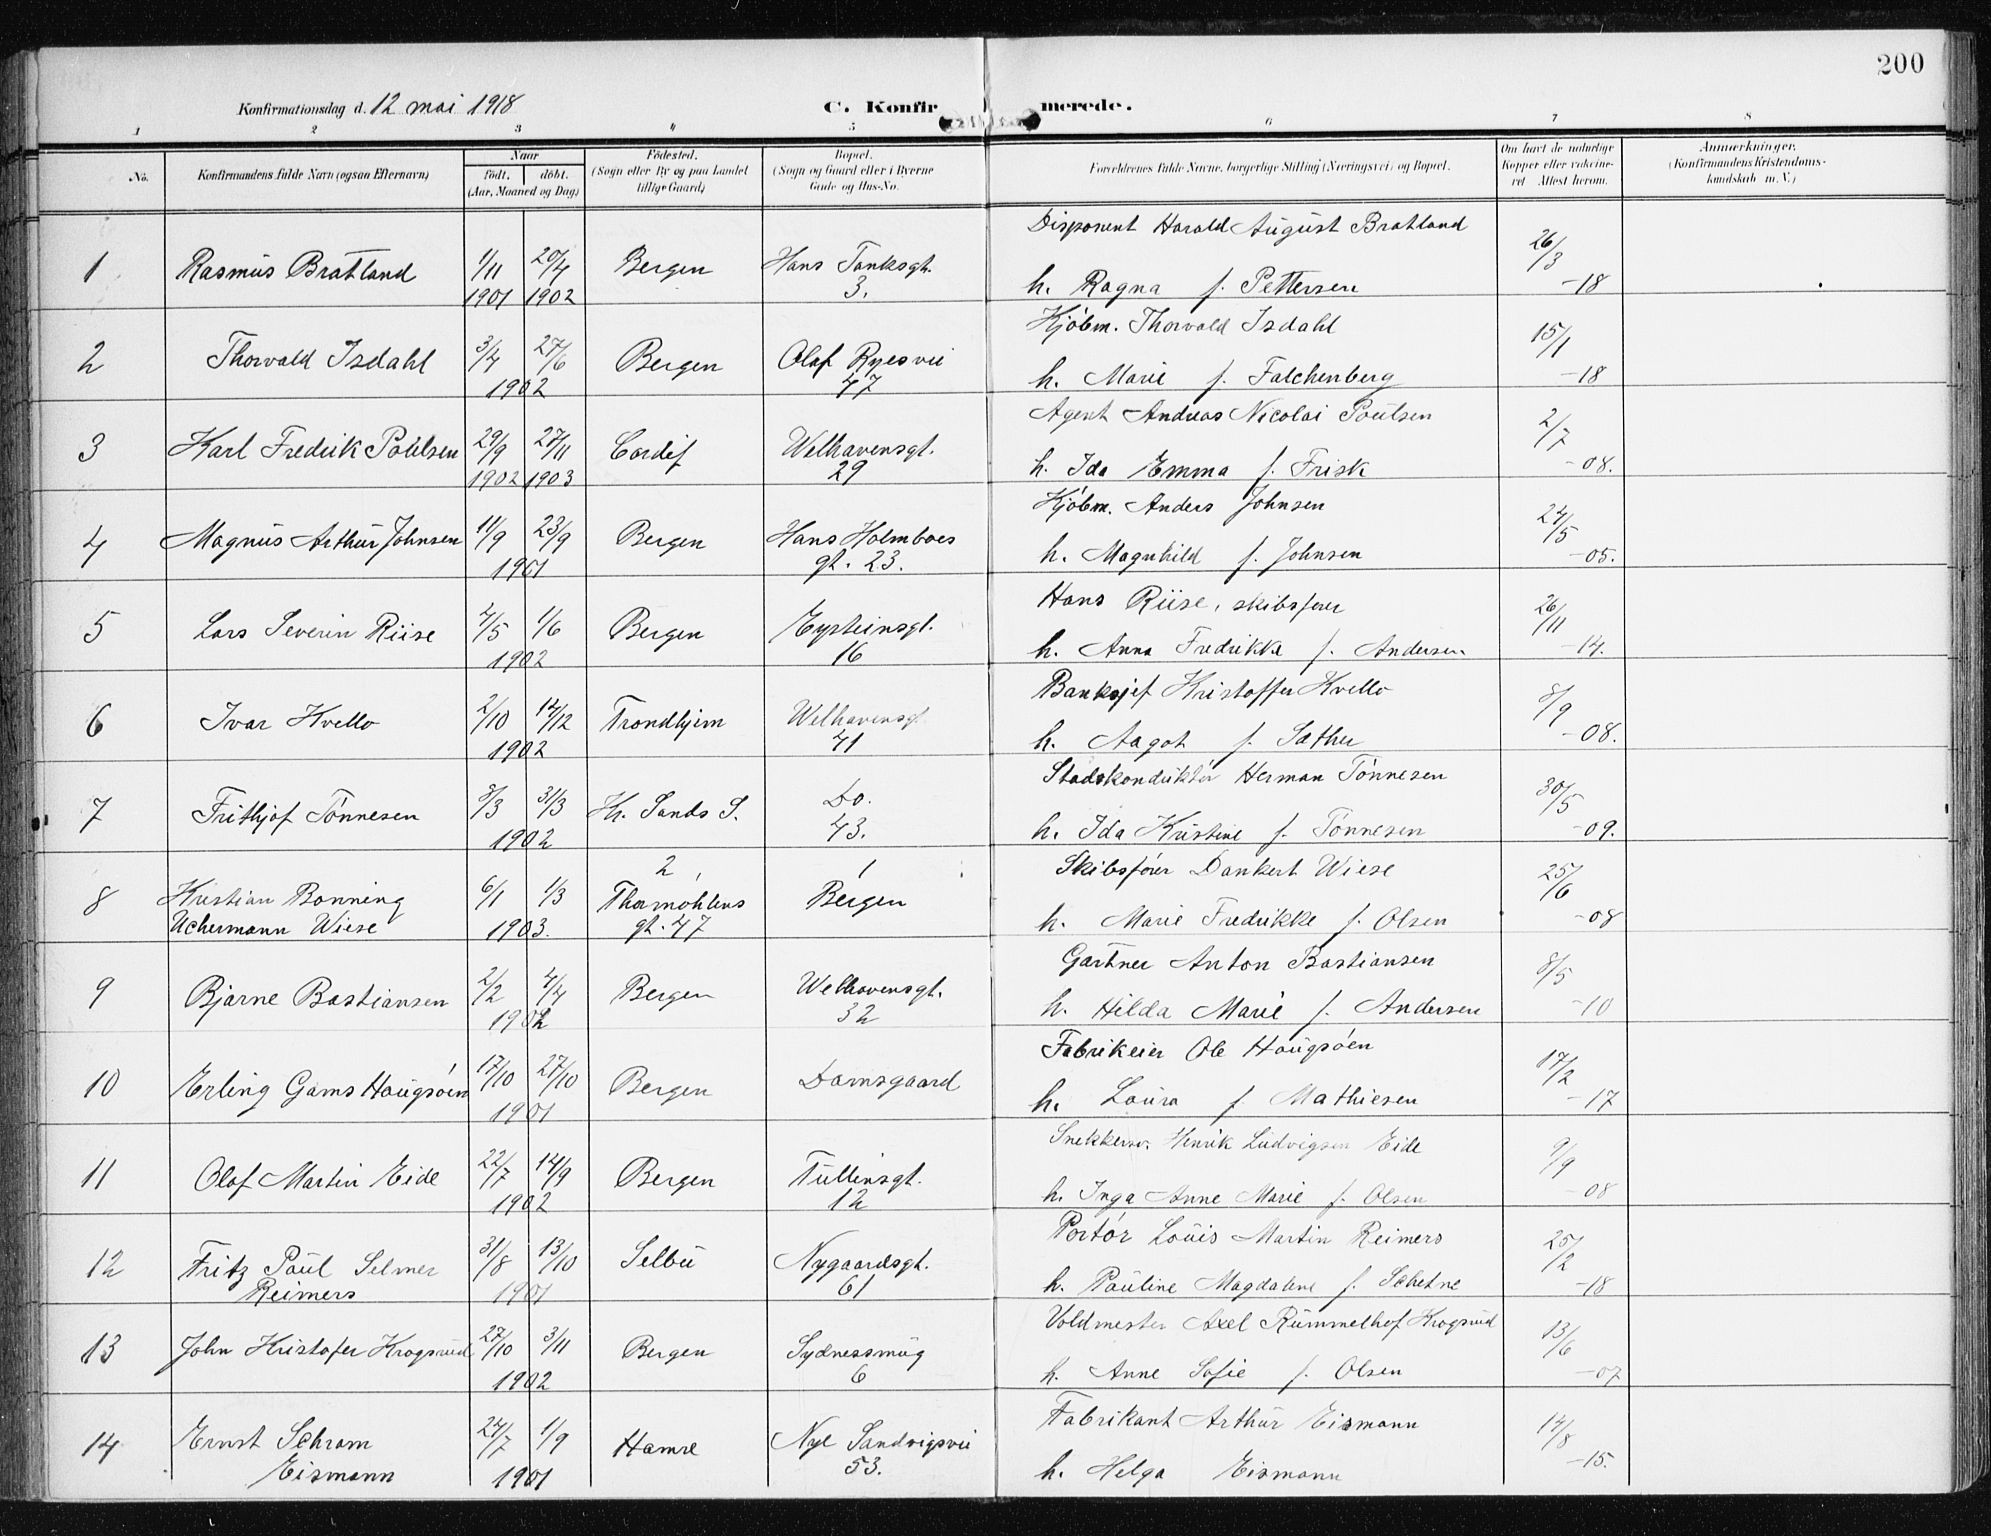 200
Konfirmationsdag d. 12 mai 1918 C. Konfirmerede.
1 2 3 4 5 6 7 8
No. Konfirmandens fulde Navn (ogsaa Efternavn) Naar født. døbt. (Aar, Maaned og Dag) Fødested. (Sogn eller By og paa Landet tillige Gaard) Bopæl. (Sogn og Gaard eller i Byerne Gade og Hus-No. Forældrenes fulde Navne, borgerlige Stilling (Næringsvei) og Bopæl. Om havt de naturlige Kopper eller vakcineret Attest herom. Anmærkninger. (Konfirmandens Kristendomskundskab m. V.)
Disponent Harald August Bratland
1 Rasmus Bratland 1/11 20/4 Bergen Hans Tanksgt. 26/3
1901 1902 3. h. Ragna f. Pettersen -18
Kjøbm. Thorvald Isdahl
2 Thorvald Isdahl 3/4 27/6 Bergen Olaf Ryesvei 15/1
1902 47 h. Marie f. Falchenberg -18
Agent Andreas Nicolai Poulsen
3 Karl Fredrik Poulsen 29/9 27/11 Cardif Welhavensgt. 2/7
1902 1903 29 h. Ida Emma f. Frisk -08.
Kjøbm. Anders Johnsen
4 Magnus Arthur Johnsen 11/9 23/9 Bergen Hans Holmboes 24/5
1901 gt. 23. h. Magnhild f. Johnsen -05.
Hans Riise, skibsfører
5 Lars Severin Riise 4/5 1/6 Bergen Eysteinsgt. 26/11
1902 16 h. Anna Fredrikke f. Andersen -14.
Banksjef Kristoffer Kvello
6 Ivar Kvello 2/10 14/12 Trondhjem Welhavensgt. 8/9
1902 41 h. Aagot f. Sæther -08.
Stadskonduktør Herman Tønnesen
7 Frithjof Tønnesen 8/3 31/3 Kr. Sands S. Do. 30/5
1902 43. h. Ida Kristine f. Tønnesen -09.
2 1 Skibsfører Dankert Wiese
8 Kristian Bonning 6/1 1/3 Thormøhlens Bergen 25/6
Uchermann Wiese 1903. gt. 47 h. Marie Fredrikke f. Olsen -08
Gartner Anton Bastiansen
9 Bjarne Bastiansen 2/2 4/4 Bergen Welhavensgt. 8/5
1902 32 h. Hilda Marie f. Andersen -10
Fabrikeier Ole Haugsøen
10 Erling Gams Haugsøen 17/10 27/10 Bergen Damsgaard 17/2
1901 h. Laura f. Mathiesen -17
Snekkersv. Henrik Ludvigsen Eide
11 Olaf Martin Eide 22/7 14/9 Bergen Tullinsgt. 9/9
1902 12 h. Inga Anne Marie f. Olsen -08
Portør Louis Martin Reimers
12 Fritz Paul Selmer 31/8 13/10 Selbu Nygaardsgt. 25/2
Reimers 1901 61 h. Pauline Magdalene f. Schetne -18
Voldmester Axel Rummelhof Krogsrud
13 John Kristofer Krogsrud 27/10 3/11 Bergen Sydnessmug 13/6
1902 6 h. Anne Sofie f. Olsen -07
Fabrikant Arthur Eismann
14 Ernst Schram 24/7 1/9 Hamre Nye Sandvigsvei 14/8
Eismann 1901 53. h. Helga Eismann -15.